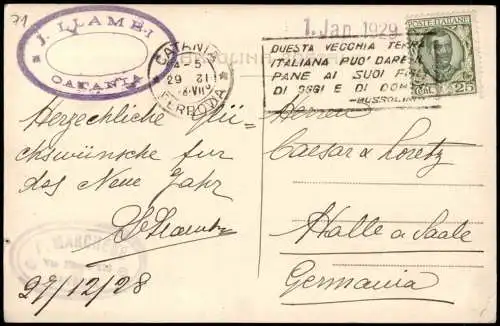 71
J. LLAMBI
CATANIA
CATANIA
4-5
29 XII
FERROVIA
1. Jan. 1929
QUESTA VECCHIA TERRA
ITALIANA PUO' DARE
PANE AI SUOI FIGLI
DI OGGI E DI DOM
MUSSOLINI
POSTE ITALIANE
CENT. 25
Herzechliche Glü-
chswünsche fur
das Neue Jahr
27/12/28
Herren
Caesar & Loretz
Halle a Saale
Germania